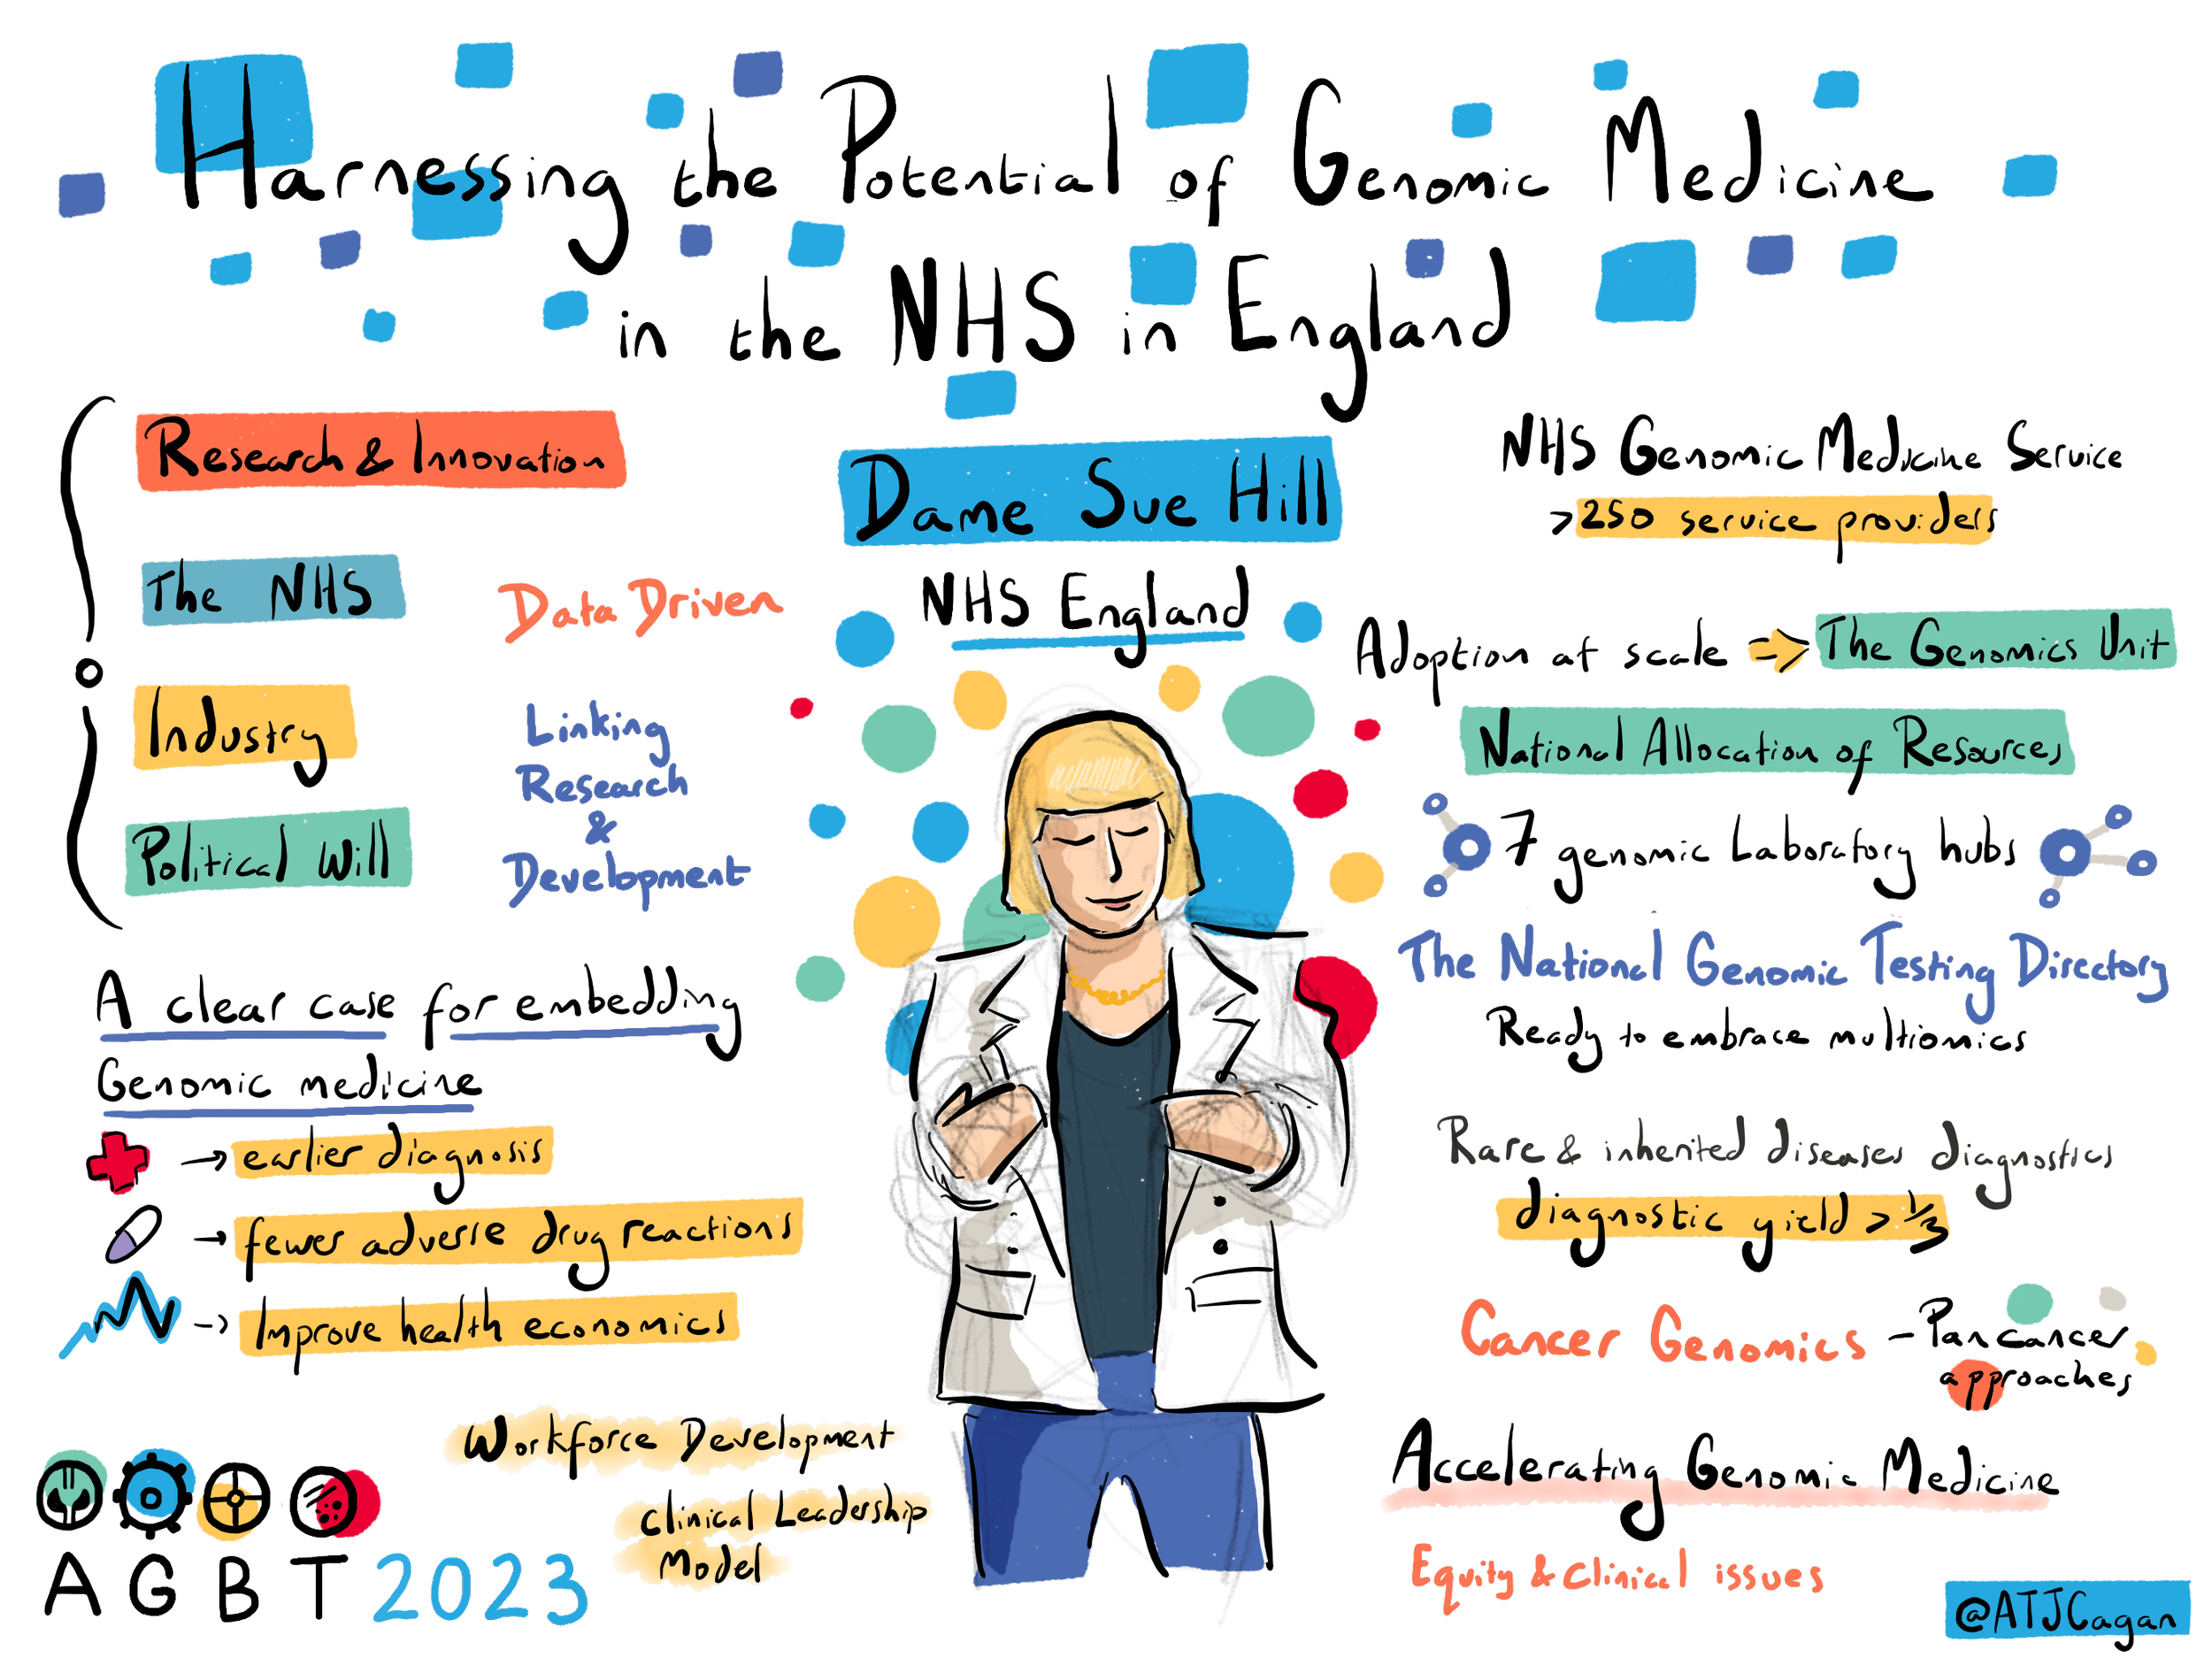 Harnessing the Potential of Genomic Medicine
in the NHS in England
Research & Innovation
The NHS
Industry
Political Will
Data Driven
Linking
Research
&
Development
A clear case for embedding
Genomic medicine
→ earlier diagnosis
→ fewer adverse drug reactions
→ Improve health economics
Workforce Development
Clinical Leadership
Model
AGBT 2023
Dame Sue Hill
NHS England
NHS Genomic Medicine Service
>250 service providers
Adoption at scale ⇒ The Genomics Unit
National Allocation of Resources
7 genomic Laboratory hubs
The National Genomic Testing Directory
Ready to embrace multiomics
Rare & inherited diseases diagnostics
diagnostic yield > 1/3
Cancer Genomics – Pan cancer
approaches
Accelerating Genomic Medicine
Equity & Clinical issues
@ATJCagan